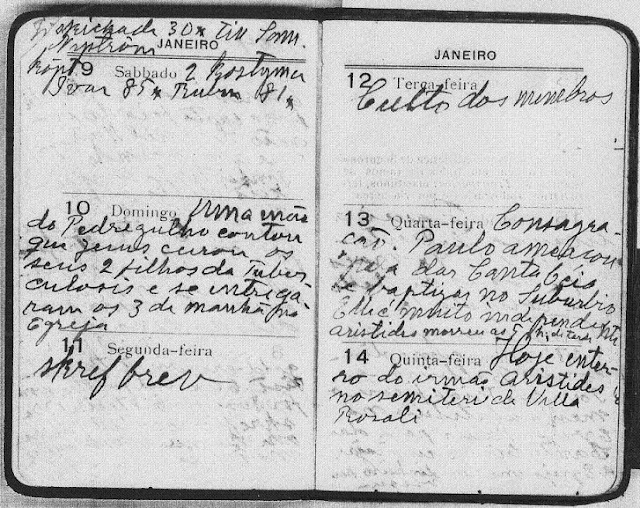 skickade 30x till Sam.
Nyström
JANEIRO
9 Sabbado 2 Kostymer
Ivar 85x Rubin 81x
10 Domingo Irma mãe
do Pedregulho contou
que Jesus curou os
seus 2 filhos da Tuber
culosis e se entrega
ram os 3 de manhã na
Egreja
11 Segunda-feira
skref brev
JANEIRO
12 Terça-feira
Culto dos membros
13 Quarta-feira Consagra
cão. Paulo ameaçou
dar Santa Ceia
e baptizar no Suburbio
Elle é muito independente
Aristides morreu as 5 h. di tarde
14 Quinta-feira Hoje enter
ro do irmão Aristides
no semiteri de Villa
Rosali